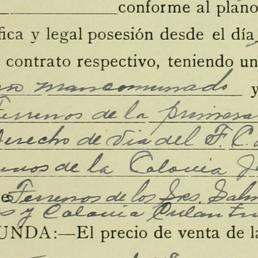 conforme al plano
fica y legal posesión desde el día
contrato respectivo, teniendo un
mancomunado y
Terrenos de la primera
derecho de via del F. C.
de la Colonia
Terrenos de los Sres.
y Colonia Culan
UNDA:—El precio de venta de la